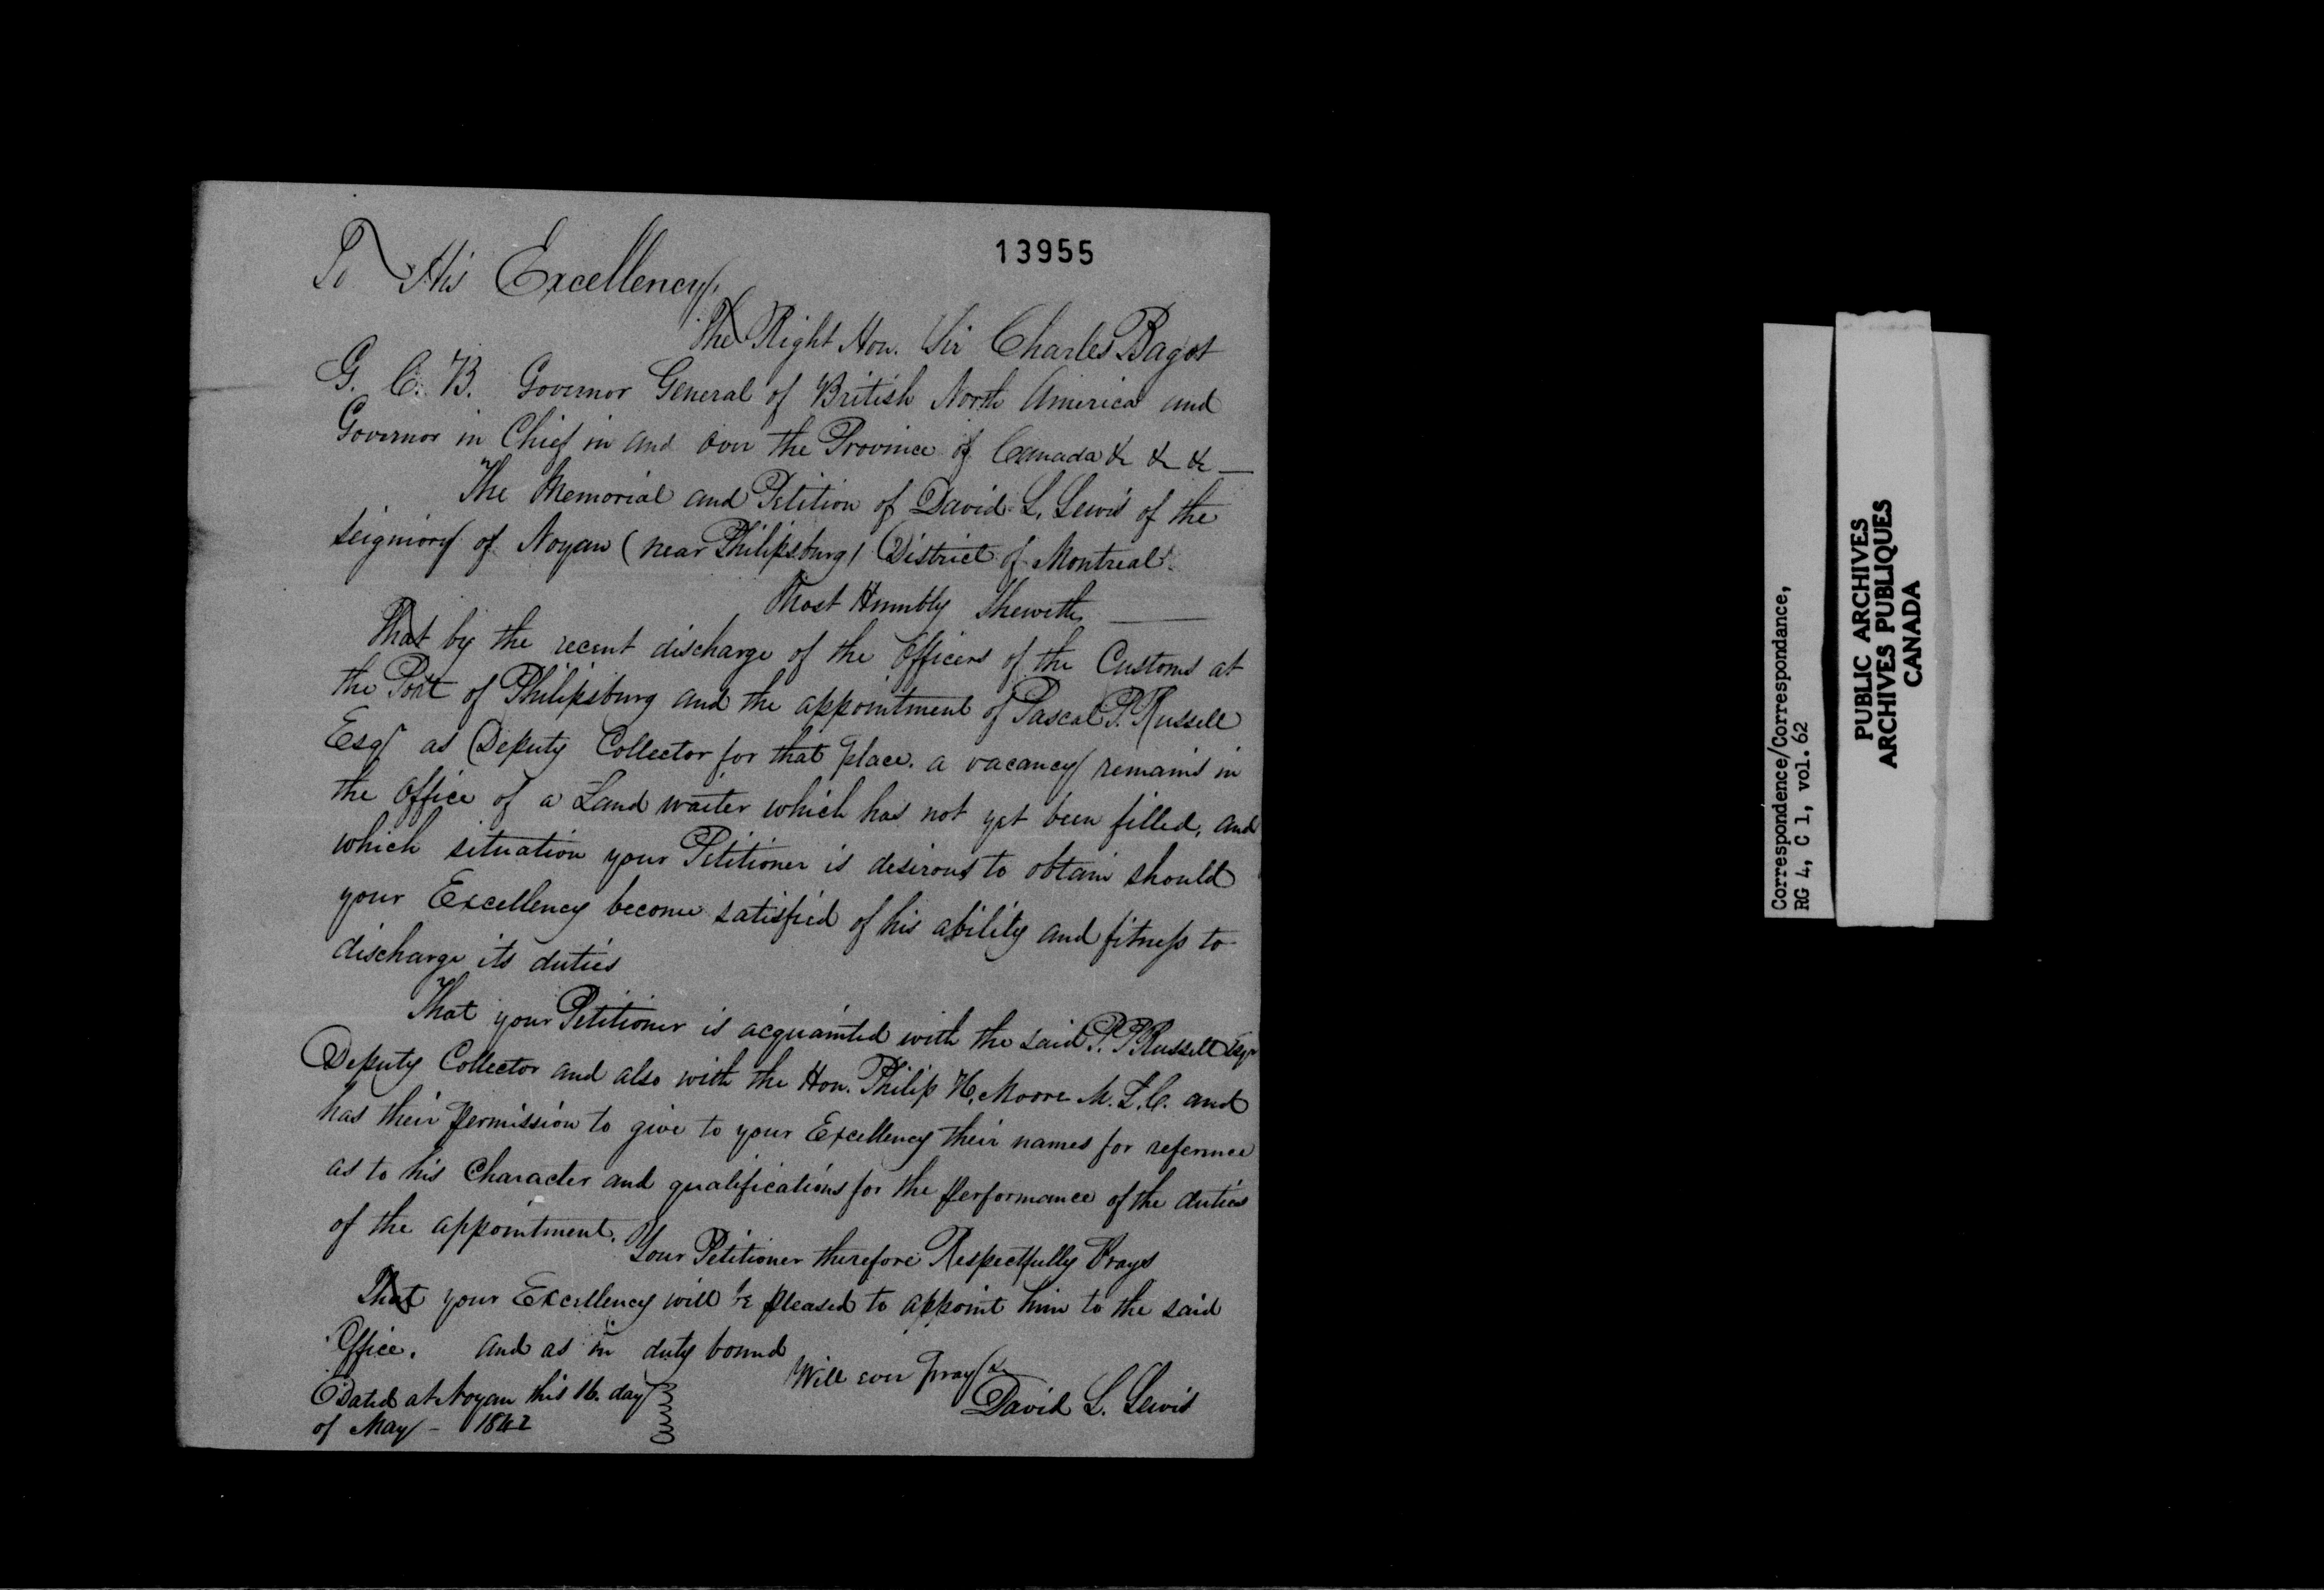 13955
To His Excellency,
The Right Hon. Sir Charles Bagot
G. C. B. Governor General of British North America and
Governor in Chief in and over the Province of Canada & & & —
The Memorial and Petition of David L. Lewis of the
Seigniory of Noyan (near Philipsburg) District of Montreal.
Most Humbly Sheweth
That by the recent discharge of the Officers of the Customs at
the Port of Philipsburg and the appointment of Pascal P. Russell
Esqr as Deputy Collector for that place. a vacancy remains in
the Office of a Land waiter which has not yet been filled, and
which situation your Petitioner is desirous to obtain should
your Excellency become satisfied of his ability and fitness to
discharge its duties
That your Petitioner is acquainted with the said P. P. Russell Esqr
Deputy Collector and also with the Hon. Philip H. Moore M. L. C. and
has their permission to give to your Excellency their names for reference
as to his Character and qualifications for the performance of the duties
of the appointment.
Your Petitioner therefore Respectfully Prays
That your Excellency will be pleased to appoint him to the said
Office. And as in duty bound
Will ever pray &
Dated at Noyan this 16. day
of May – 1842
David L. Lewis
Correspondence/Correspondance,
RG 4, C 1, vol. 62
PUBLIC ARCHIVES
ARCHIVES PUBLIQUES
CANADA